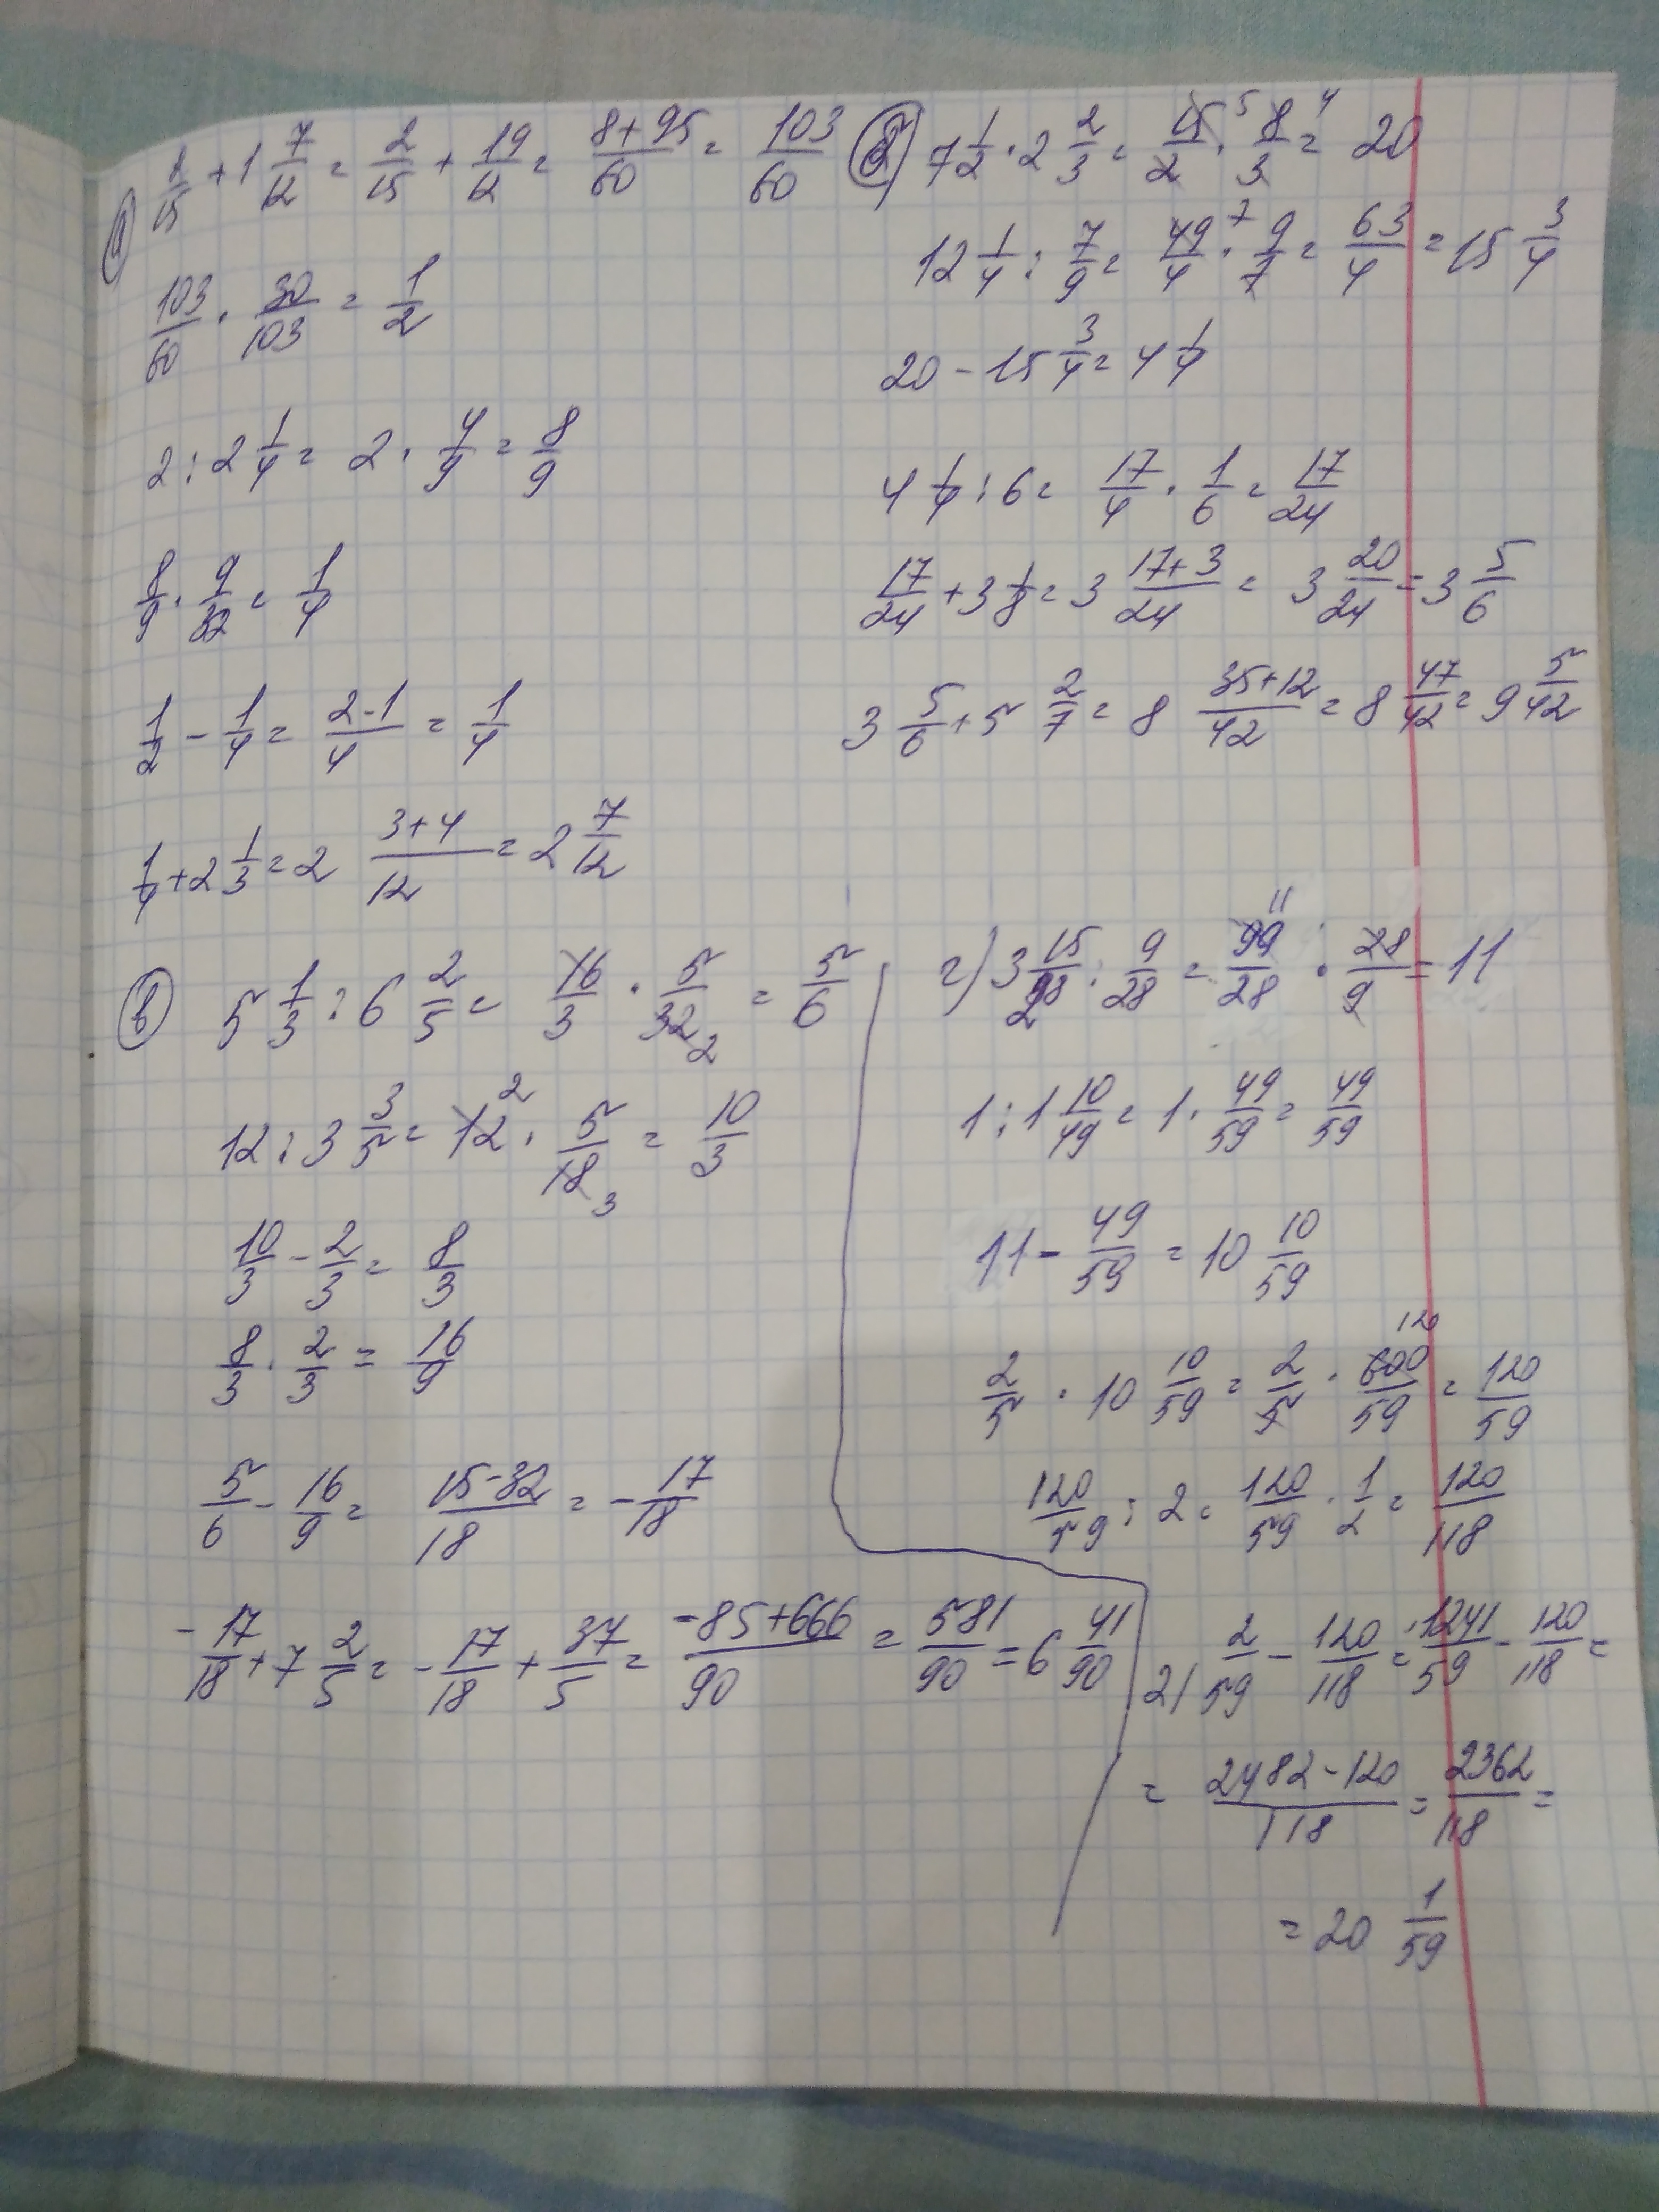 а) 2/15 + 1 7/12 = 2/15 + 19/12 = (8+95)/60 = 103/60
103/60 · 30/103 = 1/2
2 : 2 1/4 = 2 · 4/9 = 8/9
8/9 · 9/32 = 1/4
1/2 - 1/4 = (2-1)/4 = 1/4
1/4 + 2 1/3 = 2 (3+4)/12 = 2 7/12
б) 7 1/2 · 2 2/3 = 15/2 5 · 8/3 4 = 20
12 1/4 : 7/9 = 49/4 7 · 9/7 = 63/4 = 15 3/4
20 - 15 3/4 = 4 1/4
4 1/4 : 6 = 17/4 · 1/6 = 17/24
17/24 + 3 1/8 = 3 (17+3)/24 = 3 20/24 = 3 5/6
3 5/6 + 5 2/7 = 8 (35+12)/42 = 8 47/42 = 9 5/42
в) 5 1/3 : 6 2/5 = 16/3 · 5/32 2 = 5/6
12 : 3 3/5 = 12 2 · 5/18 3 = 10/3
10/3 - 2/3 = 8/3
8/3 · 2/3 = 16/9
5/6 - 16/9 = (15-32)/18 = -17/18
-17/18 + 7 2/5 = -17/18 + 37/5 = (-85+666)/90 = 581/90 = 6 41/90
г) 3 15/28 : 9/28 = 99/28 11 · 28/9 = 11
1 : 1 10/49 = 1 · 49/59 = 49/59
11 - 49/59 = 10 10/59
2/5 · 10 10/59 = 2/5 · 600/59 120 = 120/59
120/59 : 2 = 120/59 · 1/2 = 120/118
21 2/59 - 120/118 = 1241/59 - 120/118 =
= (2482-120)/118 = 2362/118 =
= 20 1/59